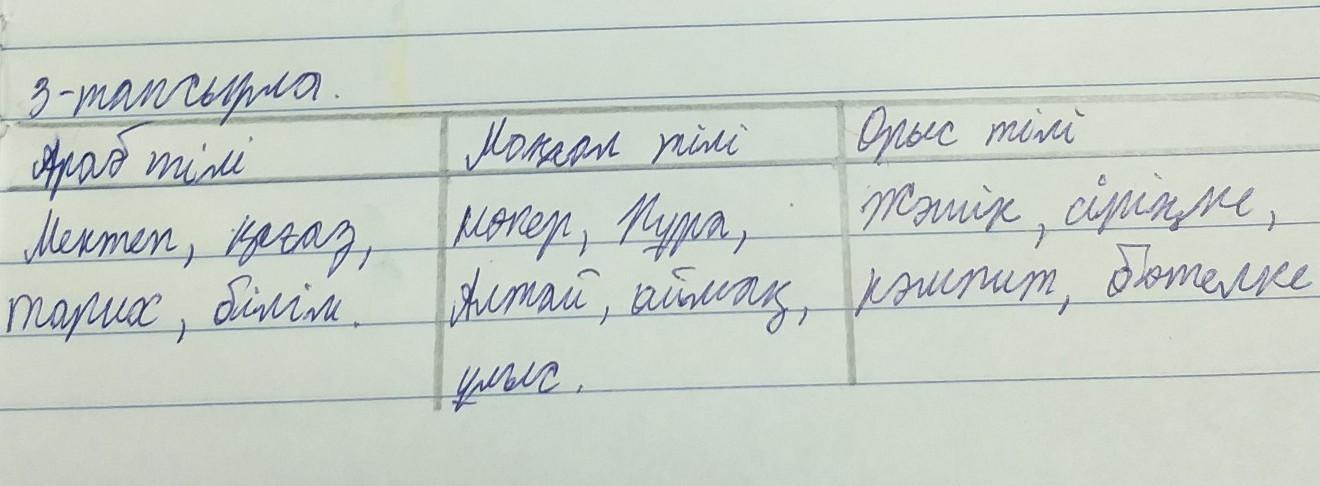 3-тапсырма.
Араб тілі Моңғол тілі Орыс тілі
Мектеп, қағаз, нөкер, Нұра, Жәшік, сіріңке,
тарих, білім. Алтай, аймақ, кәмпит, бөтелке
ұлыс.